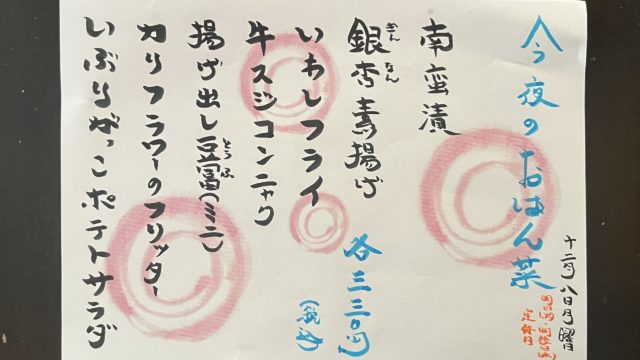 今夜のおばん菜
十二月八日月曜
定休日
南蛮漬
銀杏素揚げ
ぎんなん
いわしフライ
牛スジコンニャク
揚げ出し豆冨(ミニ)
とうふ
カリフラワーのフリッター
いぶりがっこポテトサラダ
各三三〇円
(税込)